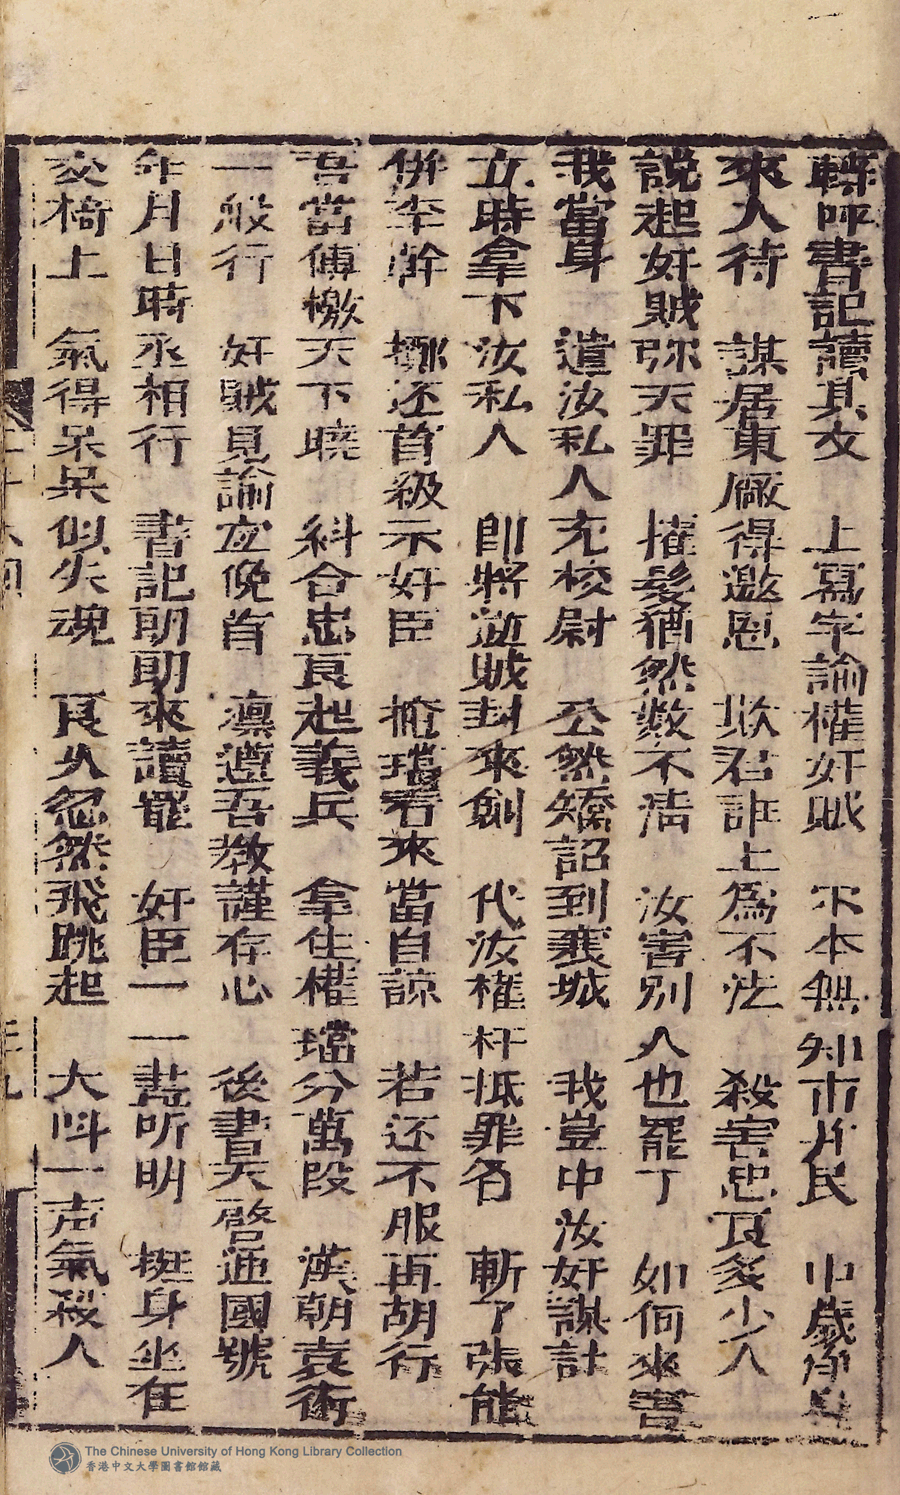 轉呼書記讀其文 上寫字諭權奸賊 尔本無知市井民 巾歲
來人待 謀居東厰得邀恩 欺君誑上為不法 殺害忠良多少人
說起奸賊弥天罪 擢髮猶然数不清 汝害别人也罷了 如何來害
我當身 遣汝私人充校尉 公然矯詔到襄城 我豈中汝奸謀計
立時拿下汝私人 即將逆賊封來劊 代汝權奸抵罪名 斬了張能
併李幹 擲还首級示奸臣 掩璫看來當自諒 若还不服再胡行
吾當傅檄天下曉 糾合忠良起義兵 拿住權璫分萬段 漢朝袁術
一般行 奸賊見諭宜俛首 凛遵吾教謹存心 後書天啓通國號
年月日時丞相行 書記朗朗來讀罷 奸臣一一盡听明 挺身坐在
交椅上 氣得呆呆似失魂 良久忽然飛跳起 大叫一声氣殺人
The Chinese University of Hong Kong Library Collection
香港中文大學圖書館館藏